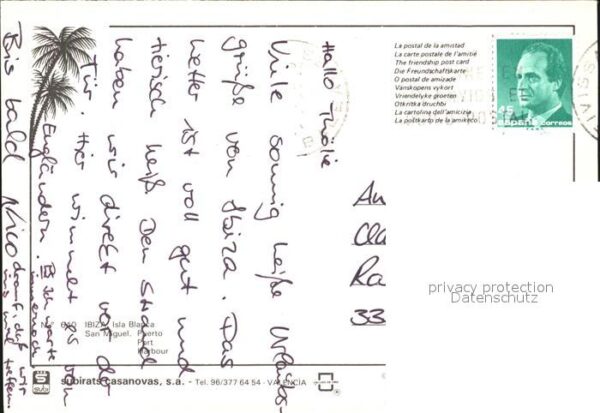 Hallo
Viele sonnig heiße Urlaubs-
grüße von Ibiza. Das
Wetter ist voll gut und
tierisch heiß. Den Strand
haben wir direkt vor der
Tür. Hier wimmelt es von
Engländern. Ich warte
Bis bald Nico
darauf, daß wir
uns mal treffen.
La postal de la amistad
La carte postale de l'amitié
The friendship post card
Die Freundschaftskarte
O postal de amizade
Vänskopens vykort
Vriendelyke groeten
Otkritka druchbi
La cartolina dell'amicizia
La poŝtkarto de la amikeco
45
ESPAÑA CORREOS
An
Cla
Ra
33
privacy protection
Datenschutz
N.º 660 IBIZA. Isla Blanca
San Miguel. Puerto
Port
Harbour
subirats casanovas, s.a. - Tel. 96/377 64 54 - VALENCIA